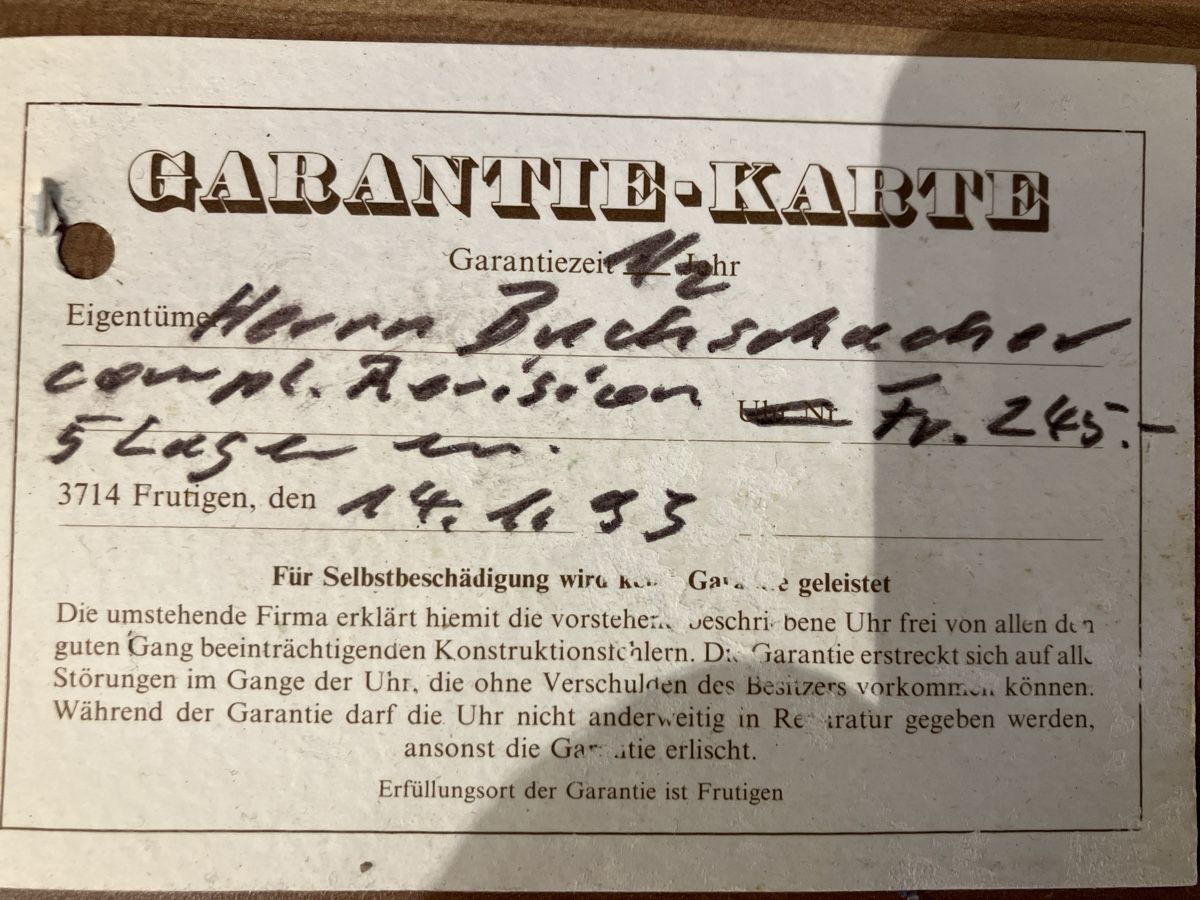 GARANTIE-KARTE
Garantiezeit 1/2 Jahr
Eigentümer Herrn Buchschacher
compl. Revision Uhr Nr. Fr. 245.-
5 Lager en.
3714 Frutigen, den 14. 1. 93
Für Selbstbeschädigung wird keine Garantie geleistet
Die umstehende Firma erklärt hiemit die vorstehend beschriebene Uhr frei von allen den
guten Gang beeinträchtigenden Konstruktionsfehlern. Die Garantie erstreckt sich auf alle
Störungen im Gange der Uhr, die ohne Verschulden des Besitzers vorkommen können.
Während der Garantie darf die Uhr nicht anderweitig in Reparatur gegeben werden,
ansonst die Garantie erlischt.
Erfüllungsort der Garantie ist Frutigen